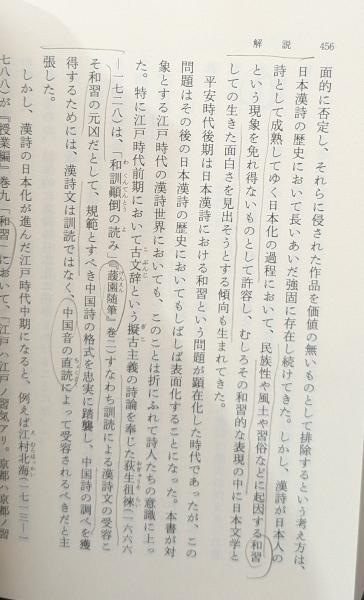 解説
456
面的に否定し、それらに侵された作品を価値の無いものとして排除するという考え方は、
日本漢詩の歴史において長いあいだ強固に存在し続けてきた。しかし、漢詩が日本人の
詩として成熟してゆく日本化の過程において、民族性や風土や習俗などに起因する和習
という現象を免れ得ないものとして許容し、むしろその和習的な表現の中に日本文学と
しての生きた面白さを見出そうとする傾向も生まれてきた。
平安時代後期は日本漢詩における和習という問題が顕在化した時代であったが、この
問題はその後の日本漢詩の歴史においてもしばしば表面化することになった。本書が対
象とする江戸時代の漢詩世界においても、このことは折にふれて詩人たちの意識に上っ
た。特に江戸時代前期において古文辞という擬古主義の詩論を奉じた荻生徂徠(一六六六
―一七二八)は、「和訓顚倒の読み」(『蘐園随筆』巻二)すなわち訓読による漢詩文の受容こ
そ和習の元凶だとして、規範とすべき中国詩の格式を忠実に踏襲し、中国詩の調べを獲
得するためには、漢詩文は訓読ではなく、中国音の直読によって受容されるべきだと主
張した。
しかし、漢詩の日本化が進んだ江戸時代中期になると、例えば江村北海(一七一三―
七八八)が『授業編』巻九「和習」において、「江戸ハ江戸ノ習気アリ。京都ハ京都ノ習